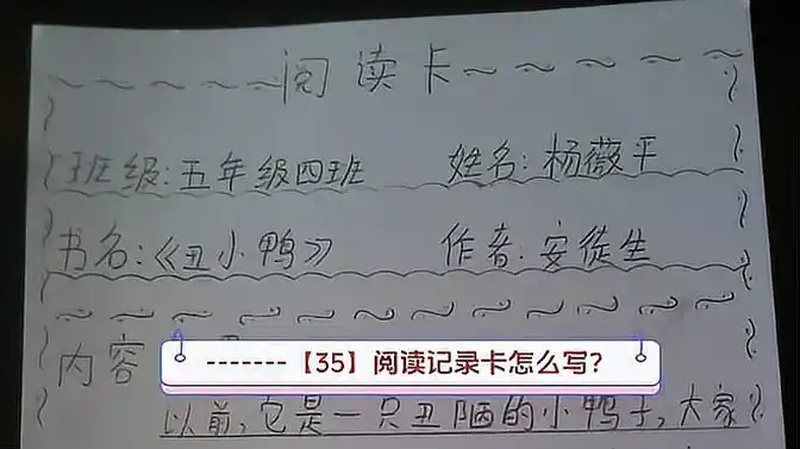 阅读卡
班级:五年级四班 姓名:杨薇平
书名:《丑小鸭》 作者:安徒生
内容
-------【35】阅读记录卡怎么写?
以前,它是一只丑陋的小鸭子,大家